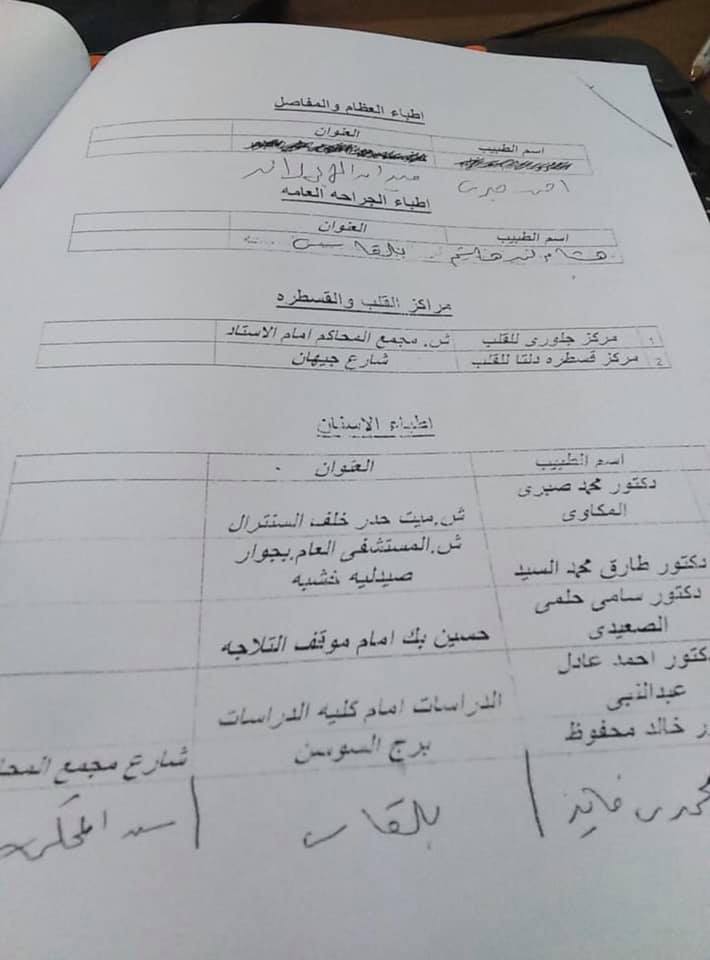 اطباء العظام والمفاصل
اسم الطبيب العنوان
اطباء الجراحه العامه
اسم الطبيب العنوان
هشام بلقاس
مراكز القلب والقسطره
1 مركز جلورى للقلب ش. مجمع المحاكم امام الاستاد
2 مركز قسطره دلتا للقلب شارع جيهان
اطباء الاسنان
اسم الطبيب العنوان
دكتور محمد صبرى
المكاوى ش.ميت حدر خلف السنترال
ش.المستشفى العام.بجوار
دكتور طارق محمد السيد صيدليه خشبه
دكتور سامى حلمى
الصعيدى حسين بك امام موقف التلاجه
دكتور احمد عادل
عبدالنبى الدراسات امام كليه الدراسات
خالد محفوظ برج السوسن شارع مجمع
فايز بلقاس